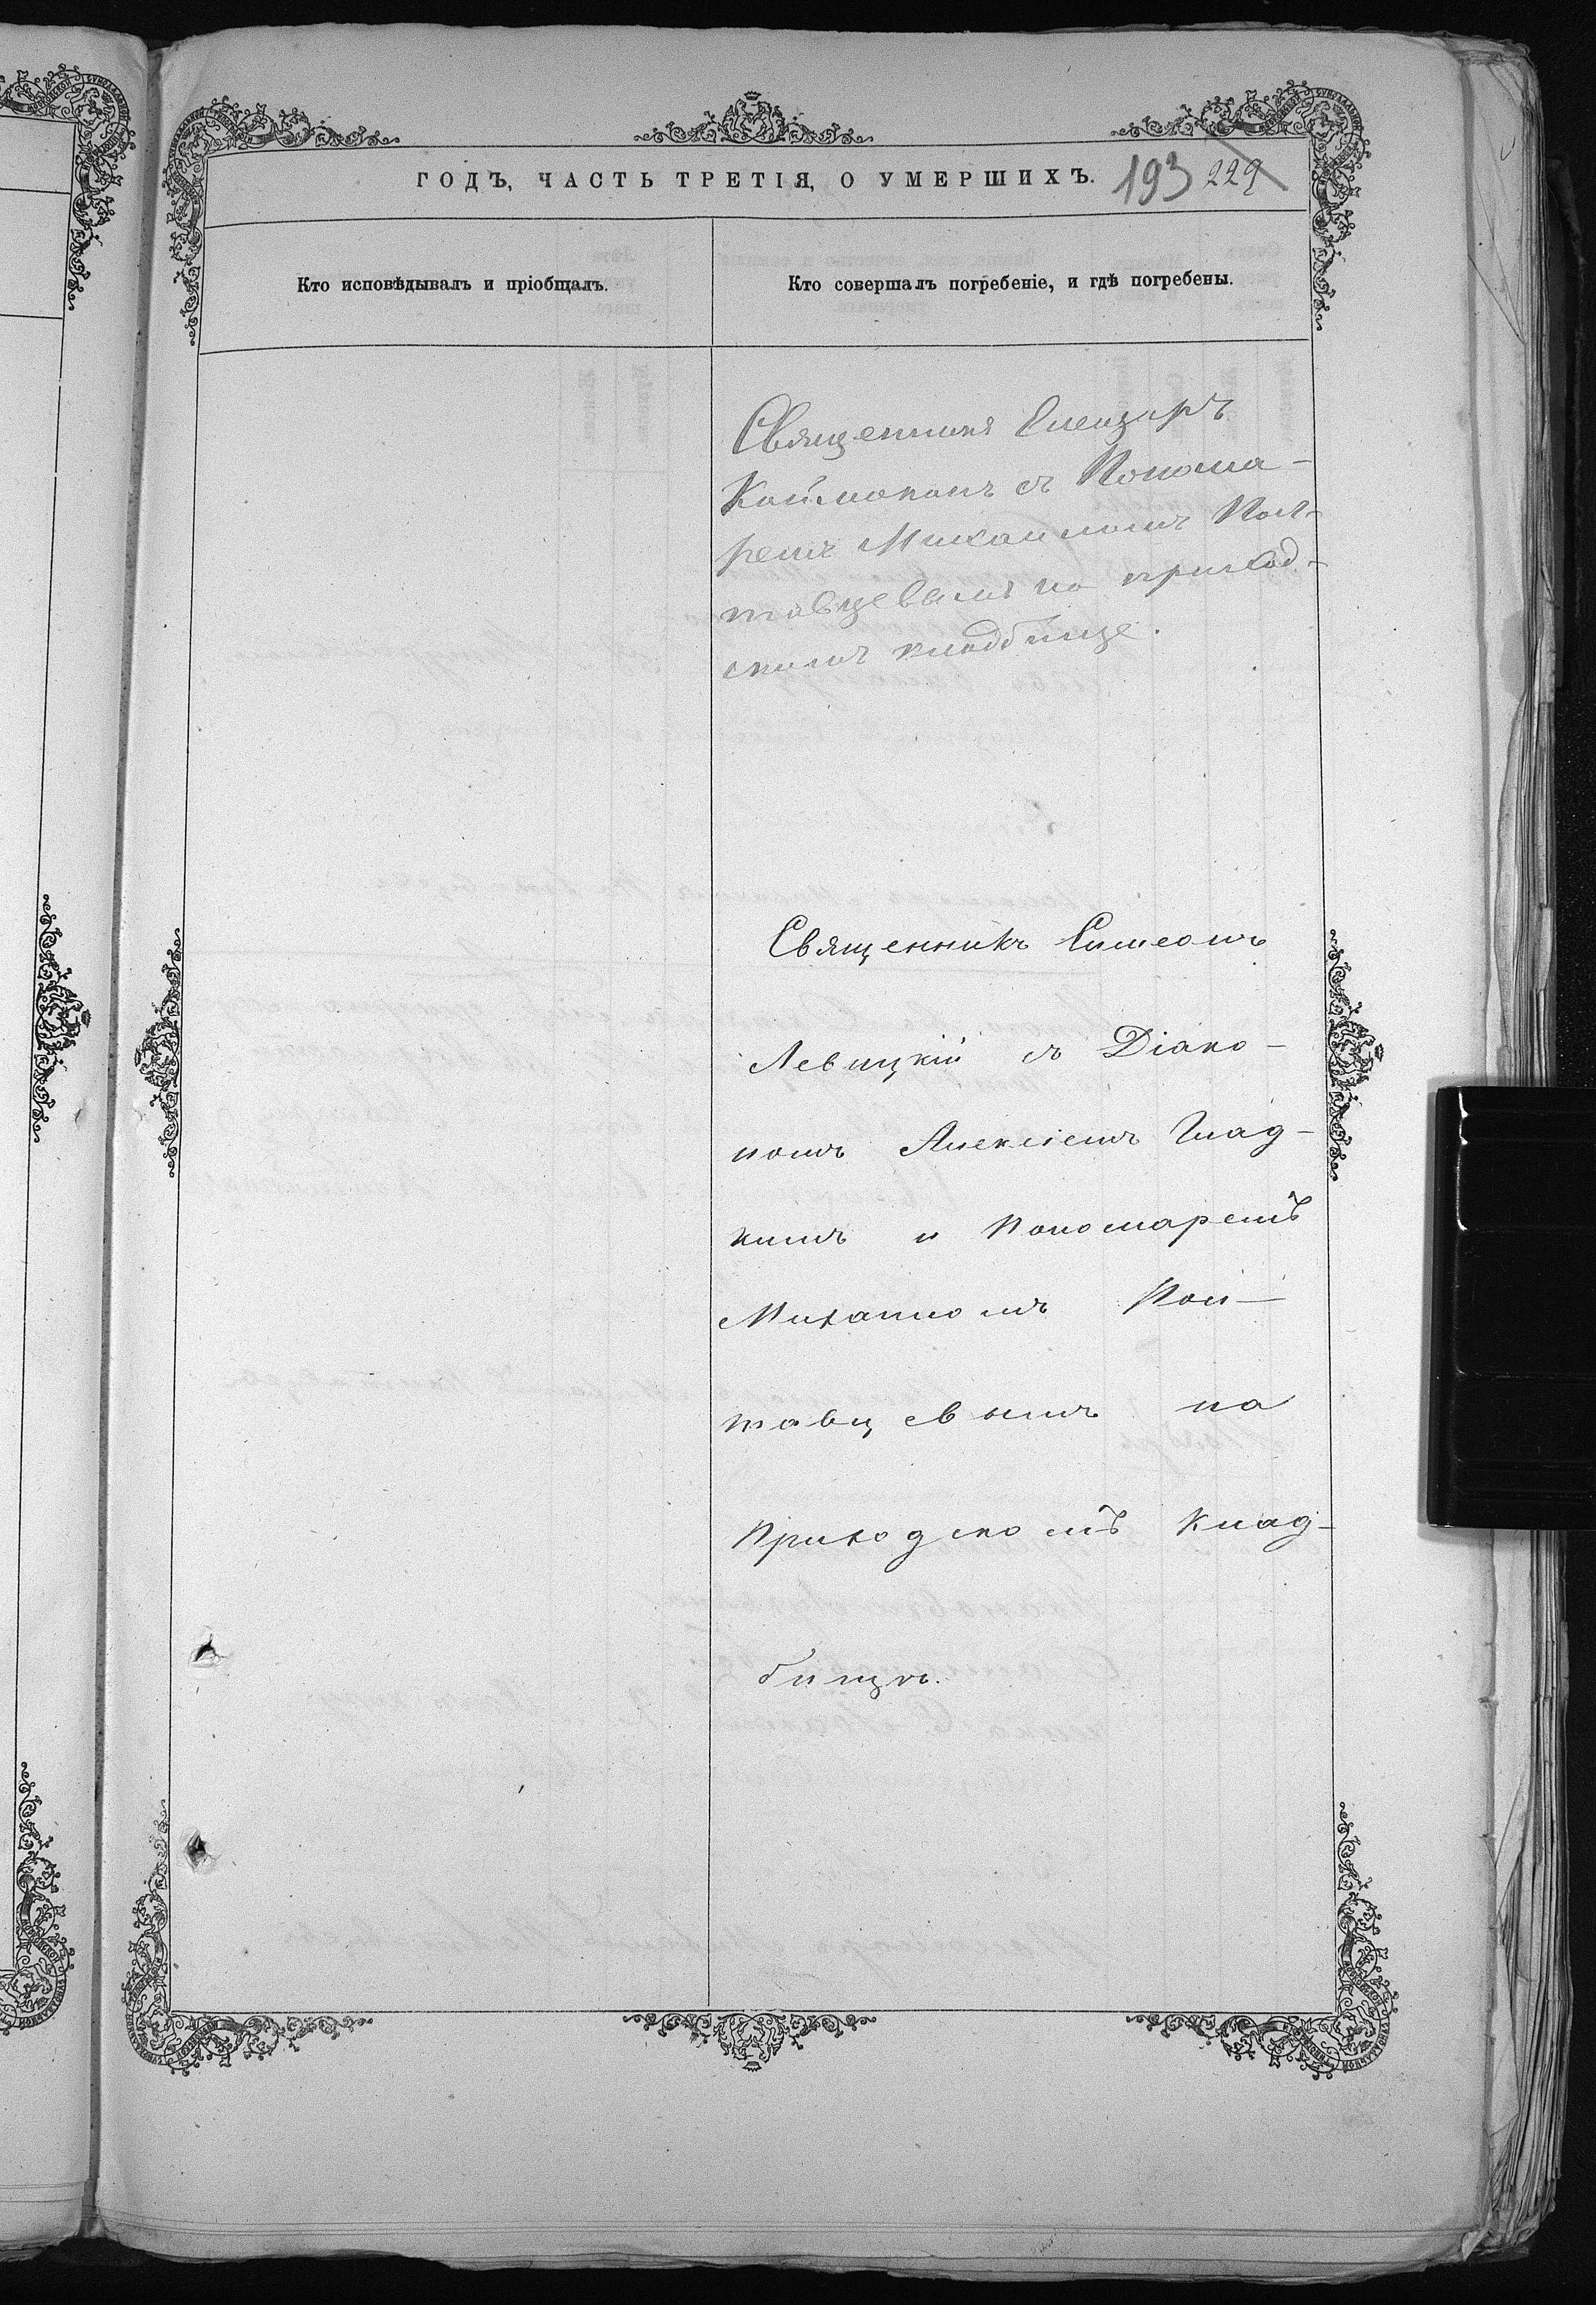 ГОДЪ, ЧАСТЬ ТРЕТІЯ, О УМЕРШИХЪ.
193 229
Кто исповѣдывалъ и пріобщалъ.
Кто совершалъ погребеніе, и гдѣ погребены.
Священникъ Елеазаръ
съ Понома-
ремъ Михаиломъ Пол-
тавцевымъ на приход-
скомъ кладбище.
Священникъ Симеонъ
Левицкій съ Діако-
номъ Алексіемъ Глад-
кимъ и Пономаремъ
Михаиломъ Пол-
тавцевымъ на
Приходскомъ Клад-
бищѣ.